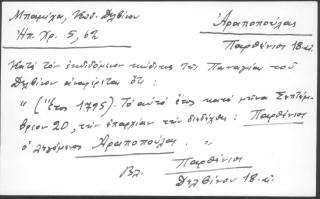 Μπαμίχα, Κώδ. Δελβίνου
Ηπ. Χρ. 5, 62
Αραποπούλας
Παρθένιος 18-ος
Κατά τον εκδιδόμενον κώδικα της Παναγίας του
Δελβίνου αναφέρεται ότι :
" (Έτος 1795). Το αυτό έτος κατά μήνα Σεπτέμ-
βριον 20, την επαρχίαν την διεδέχθη : Παρθένιος
ο λεγόμενος Αραποπούλας. "
Βλ. Παρθένιος
Δελβίνου 18-ος